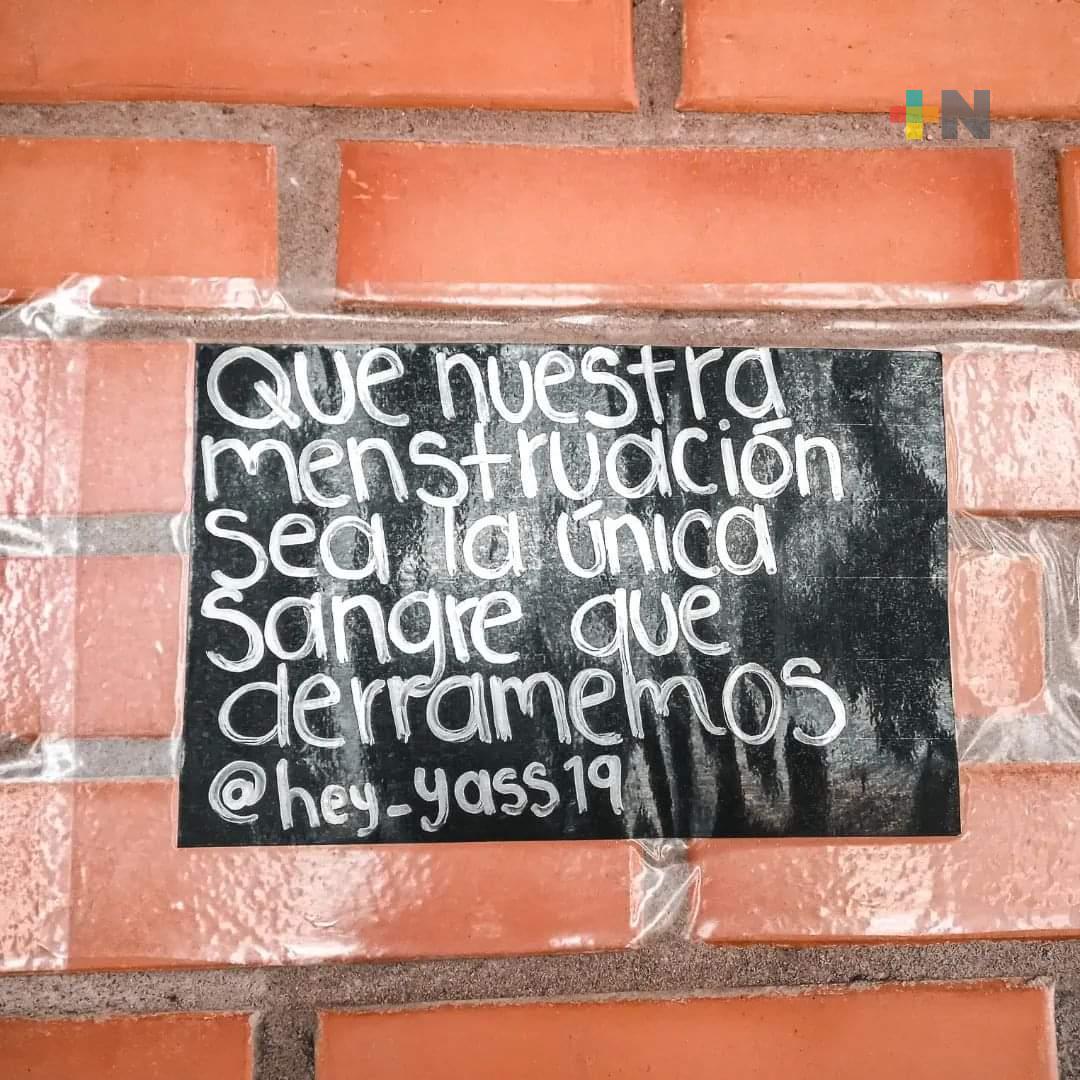 +N
Que nuestra
menstruación
sea la única
sangre que
derramemos
@hey_yass19